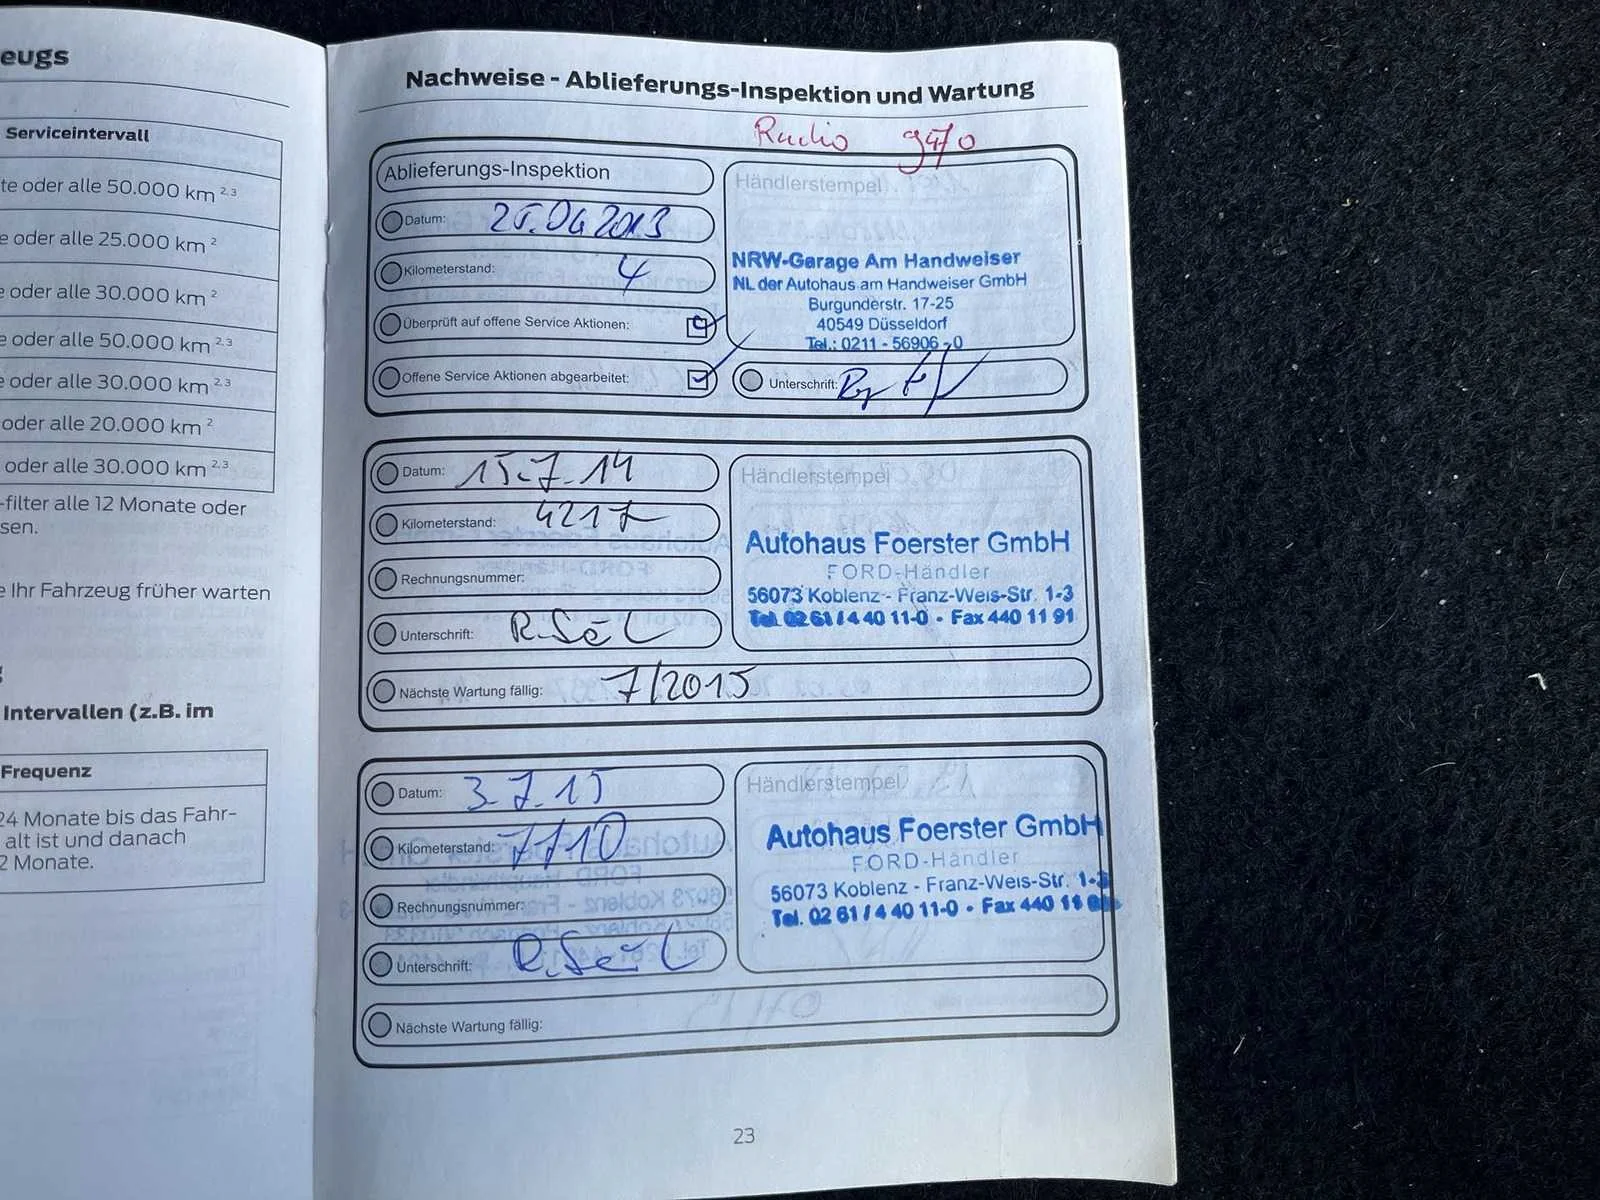 eugs
Serviceintervall
te oder alle 50.000 km 2,3
e oder alle 25.000 km 2
e oder alle 30.000 km 2
e oder alle 50.000 km 2,3
e oder alle 30.000 km 2,3
oder alle 20.000 km 2
oder alle 30.000 km 2,3
-filter alle 12 Monate oder
sen.
e Ihr Fahrzeug früher warten
g
Intervallen (z.B. im
Frequenz
24 Monate bis das Fahr-
alt ist und danach
2 Monate.
Nachweise - Ablieferungs-Inspektion und Wartung
Radio 9470
Ablieferungs-Inspektion
Datum: 25.04.2013
Kilometerstand: 4
Überprüft auf offene Service Aktionen:
Offene Service Aktionen abgearbeitet:
Händlerstempel
NRW-Garage Am Handweiser
NL der Autohaus am Handweiser GmbH
Burgunderstr. 17-25
40549 Düsseldorf
Tel.: 0211 - 56906 - 0
Unterschrift:
Datum: 15.7.14
Kilometerstand: 4217
Rechnungsnummer:
Unterschrift:
Nächste Wartung fällig: 7/2015
Händlerstempel
Autohaus Foerster GmbH
FORD-Händler
56073 Koblenz - Franz-Weis-Str. 1-3
Tel. 02 61 / 4 40 11-0 • Fax 440 11 91
Datum: 3.7.15
Kilometerstand: 7710
Rechnungsnummer:
Unterschrift:
Nächste Wartung fällig:
Händlerstempel
Autohaus Foerster GmbH
FORD-Händler
56073 Koblenz - Franz-Weis-Str. 1-3
Tel. 02 61 / 4 40 11-0 • Fax 440 11
23